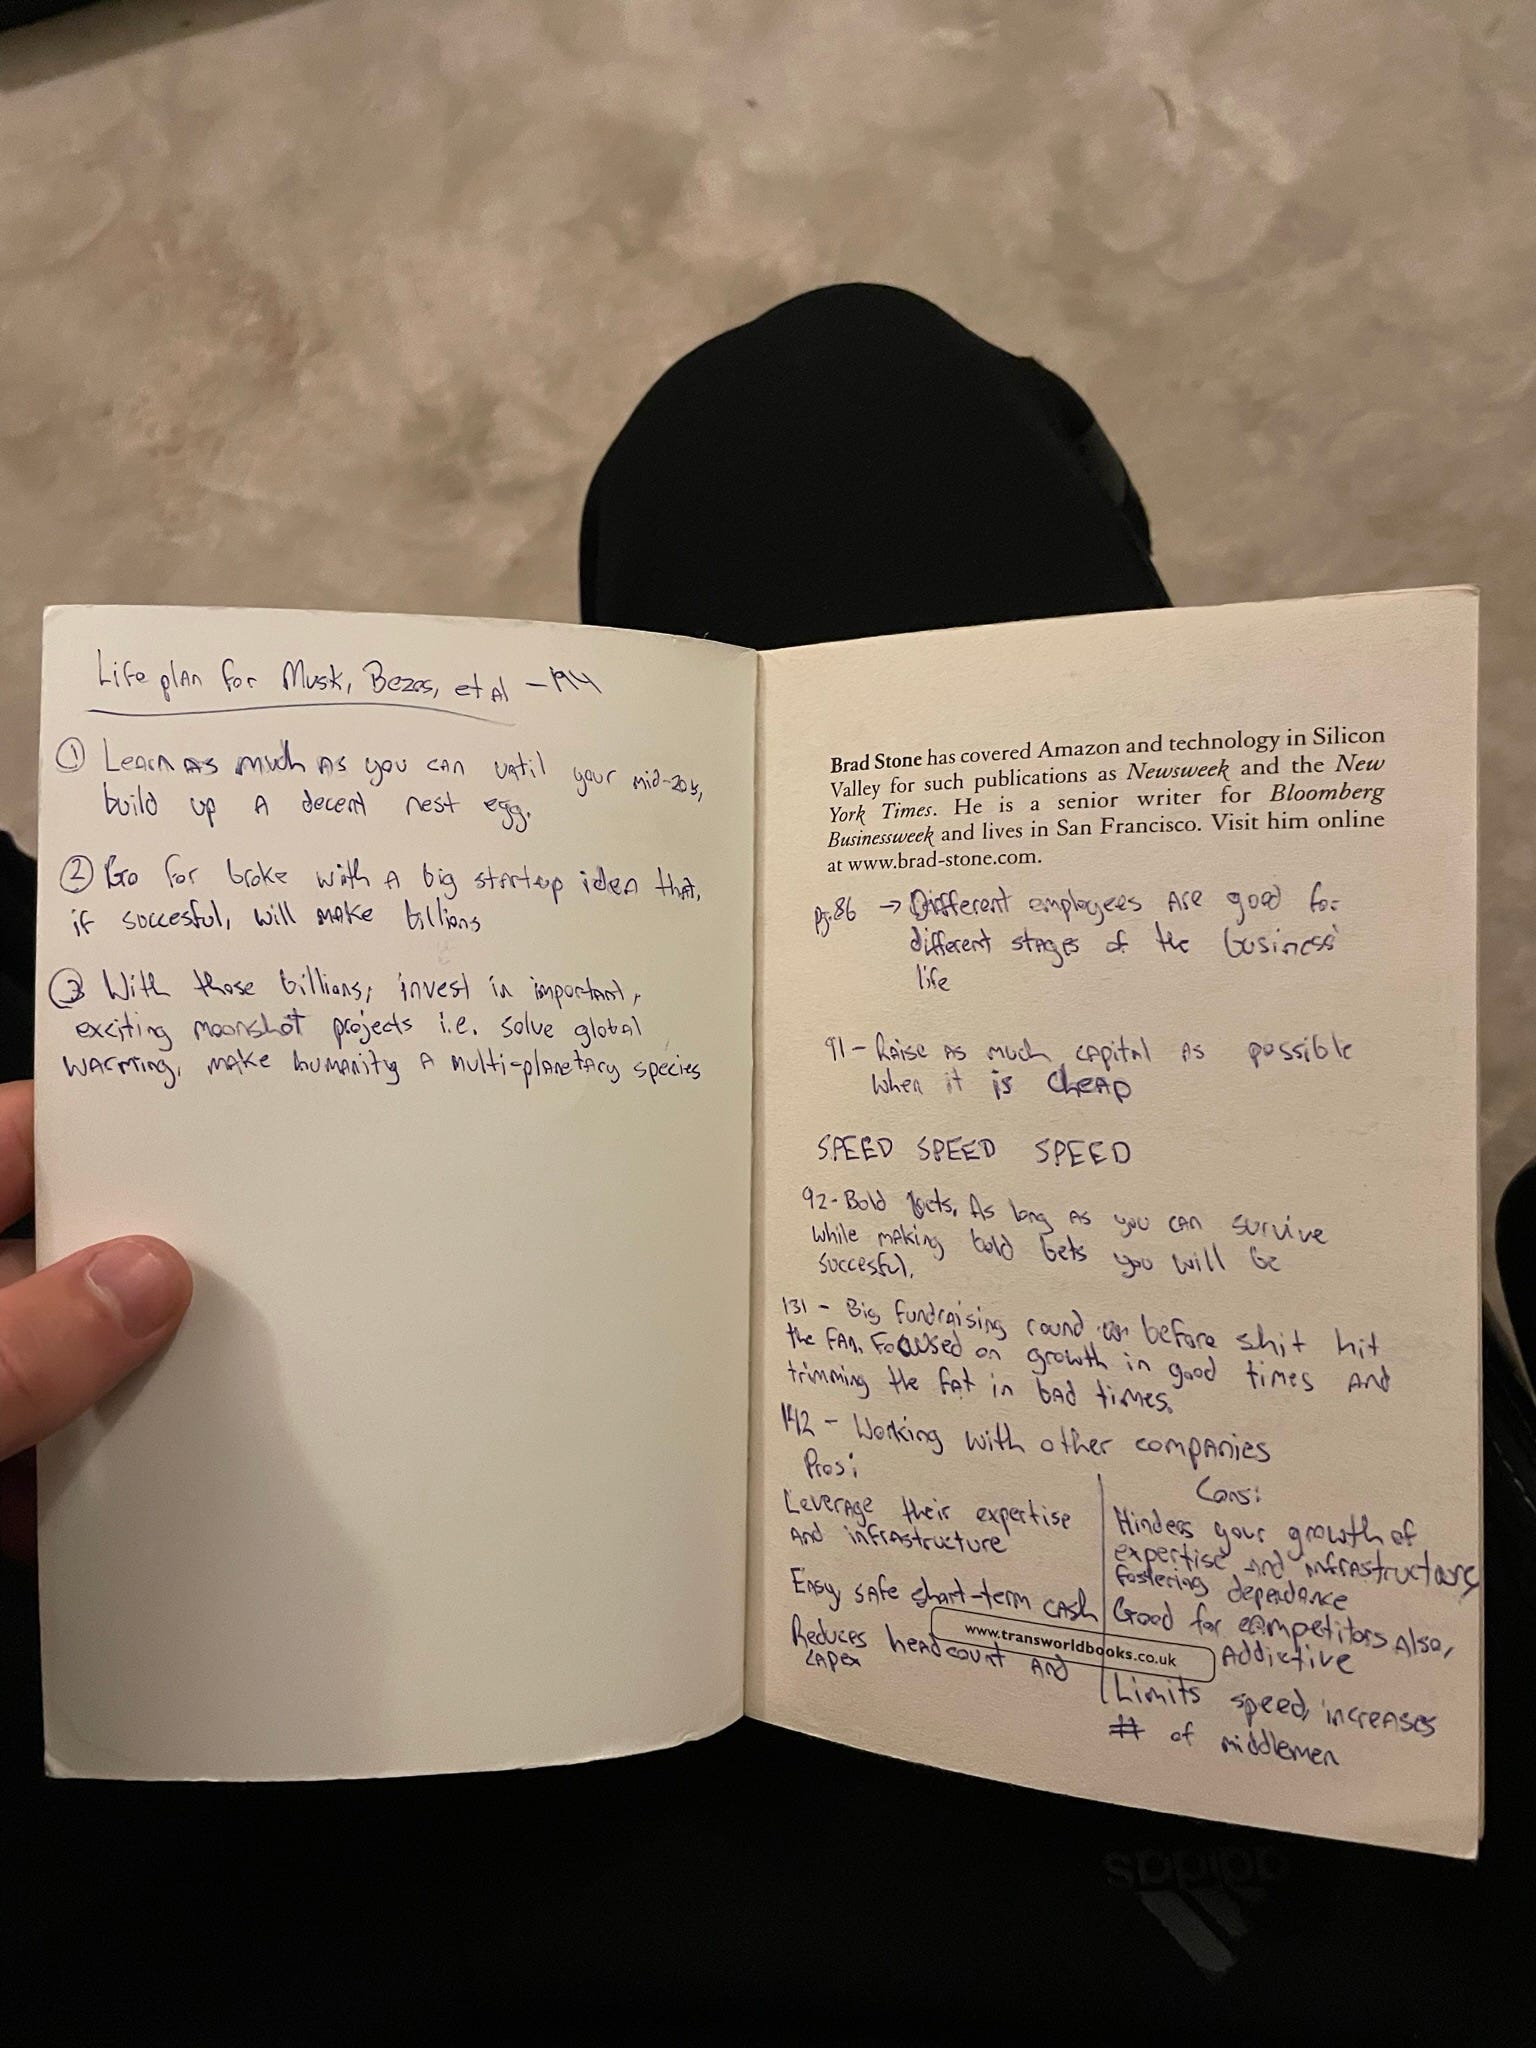 Life plan for Musk, Bezos, et al - 194
① Learn as much as you can until your mid-20s,
build up a decent nest egg.
② Go for broke with a big startup idea that,
if succesful, will make billions
③ With those billions, invest in important,
exciting moonshot projects i.e. solve global
warming, make humanity a multi-planetary species
Brad Stone has covered Amazon and technology in Silicon
Valley for such publications as Newsweek and the New
York Times. He is a senior writer for Bloomberg
Businessweek and lives in San Francisco. Visit him online
at www.brad-stone.com.
Pg. 86 → Different employees are good for
different stages of the business'
life
91 - Raise as much capital as possible
when it is cheap
SPEED SPEED SPEED
92 - Bold bets. As long as you can survive
while making bold bets you will be
succesful.
131 - Big fundraising round before shit hit
the fan. Focused on growth in good times and
trimming the fat in bad times.
142 - Working with other companies
Pros:
Leverage their expertise
and infrastructure
Easy, safe short-term cash
Reduces headcount and
capex
Cons:
Hinders your growth of
expertise and infrastructure,
fostering dependance
Good for competitors also,
addictive
Limits speed, increases
# of middlemen
www.transworldbooks.co.uk
adidas